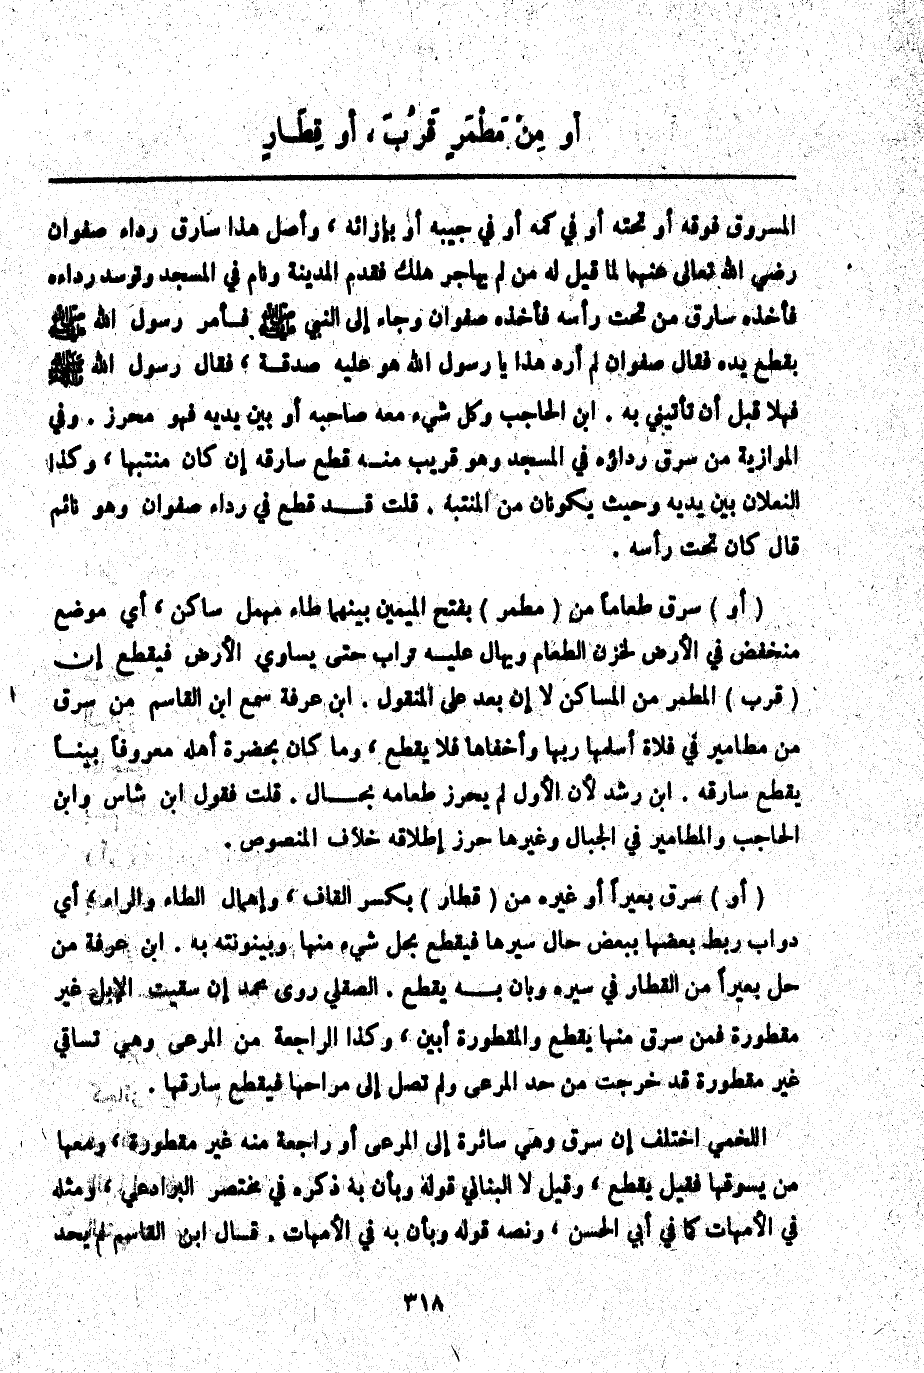 أو مِنْ مَطْمَرٍ قَرُبَ ، أو قِطَارٍ
المسروق فوقه أو تحته أو في كمه أو في جيبه أو بإزائه ، وأصل هذا سارق رداء صفوان
رضي الله تعالى عنهما لما قيل له من لم يهاجر هلك فقدم المدينة ونام في المسجد وتوسد رداءه
فأخذه سارق من تحت رأسه فأخذه صفوان وجاء إلى النبي ﷺ فأمر رسول الله ﷺ
بقطع يده فقال صفوان لم أرد هذا يا رسول الله هو عليه صدقة ، فقال رسول الله ﷺ
فهلا قبل أن تأتيني به . ابن الحاجب وكل شيء معه صاحبه أو بين يديه فهو محرز . وفي
الموازية من سرق رداؤه في المسجد وهو قريب منه قطع سارقه إن كان منتبها ، وكذا
النعلان بين يديه وحيث يكونان من المنتبه . قلت قد قطع في رداء صفوان وهو نائم
قال كان تحت رأسه .
( أو ) سرق طعاماً من ( مطمر ) بفتح الميمين بينهما طاء مهمل ساكن ، أي موضع
منخفض في الأرض لخزن الطعام ويهال عليه تراب حتى يساوي الأرض فيقطع إن
( قرب ) المطمر من المساكن لا إن بعد على المنقول . ابن عرفة سمع ابن القاسم من سرق
من مطامير في فلاة أسلمها ربها وأخفاها فلا يقطع ، وما كان بحضرة أهله معروفاً بيناً
يقطع سارقه . ابن رشد لأن الأول لم يحرز طعامه بحال . قلت فقول ابن شاس وابن
الحاجب والمطامير في الجبال وغيرها حرز إطلاقه خلاف المنصوص .
( أو ) سرق بعيراً أو غيره من ( قطار ) بكسر القاف ، وإهمال الطاء والراء ، أي
دواب ربط بعضها ببعض حال سيرها فيقطع بحل شيء منها وبينونته به . ابن عرفة من
حل بعيراً من القطار في سيره وبان به يقطع . الصقلي روى محمد إن سقيت الإبل غير
مقطورة فمن سرق منها يقطع والمقطورة أبين ، وكذا الراجعة من المرعى وهي تساقي
غير مقطورة قد خرجت من حد المرعى ولم تصل إلى مراحها فيقطع سارقها .
اللخمي اختلف إن سرق وهي سائرة إلى المرعى أو راجعة منه غير مقطورة ، ومعها
من يسوقها فقيل يقطع ، وقيل لا البناني قوله وبأن به ذكره في مختصر البرادعي ، ومثله
في الأمهات كما في أبي الحسن ، ونصه قوله وبأن به في الأمهات . قال ابن القاسم لم يحد
٣١٨